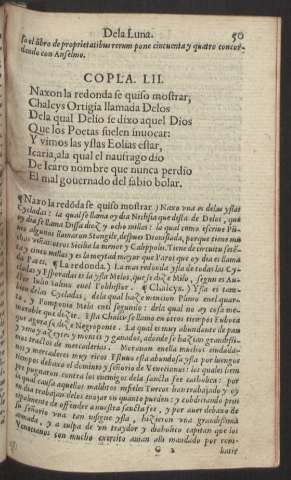 De la Luna. 50
so el libro de proprietatibus rerum pone cincuenta y quatro concor-
dando con Anselmo.
COPLA. LII.
Naxon la redonda se quiso mostrar,
Chalcys Ortigia llamada Delos
De la qual Delio se dixo aquel Dios
Que los Poetas suelen inuocar:
Y vimos las yslas Eolias estar,
Icaria, ala qual el naufrago dio
De Icaro nombre que nunca perdio
El mal gouernado del sabio bolar.
Naxo la redõda se quiso mostrar) Naxo vna es delas yslas
Cycladas: la qual se llama oy dia Nichsia que dista de Delos, que
oy dia se llama Dissa diez y ocho millas: la qual como escriue Pli-
nio algunos llamaron Stongile, despues Dionysiada, porque tiene mu
chas viñas: otros Sicilia la menor y Callipolis. Tiene de circuito seten-
ta y cinco millas y es la meytad mayor que Paros que oy dia es llamada
Pario. (La redonda.) La mas redonda ysla de todas las Cy-
cladas y Esporadas es la ysla Melos, que se dize Milo, segun es Au-
tor Iulio Solino enel Polihistor. (Chalcys.) Ysla es tam-
bien delas Cycladas, dela qual haze mencion Plinio enel quar-
to, y Pomponio Mela enel segundo: dela qual no ay cosa me-
morable que dezir. Esta Chalcis se llamo en otros tiempos Euboea
que agora se dize Negroponte. La qual es muy abundante de pan
y vino y azeyte y montes y ganados, adonde se hazian grandissi-
mos tractos de mercaderias. Morauan enella muchos ciudada-
nos y mercaderes muy ricos. Estuuo esta abundosa ysla por luengos
tiempos debaxo el dominio y señorio de Venecianos: los quales siem
pre pugnaron contra los enemigos dela sancta fe catholica: por
la qual causa aquellos malditos infieles Turcos han trabajado y oy
dia trabajan deles enojar en quanto pueden: y cobdiciando prin
cipalmente de offender a nuestra sancta fe, y por auer debaxo de
su señorio vna tan insigne ysla, hizieron vna grandissima
armada, y a culpa de vn traydor y diabolico capitan que los
Venecianos con mucho exercito auian alli mandado por remi-
G 2 batir